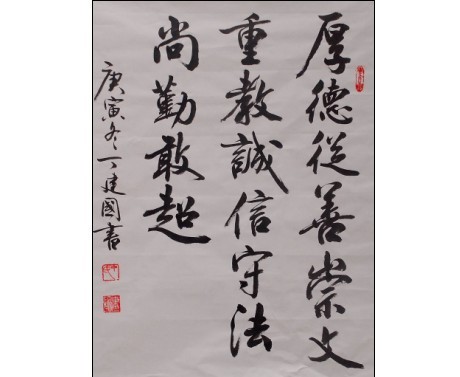 厚德從善崇文
重教誠信守法
尚勤敢超
庚寅冬丁建國書